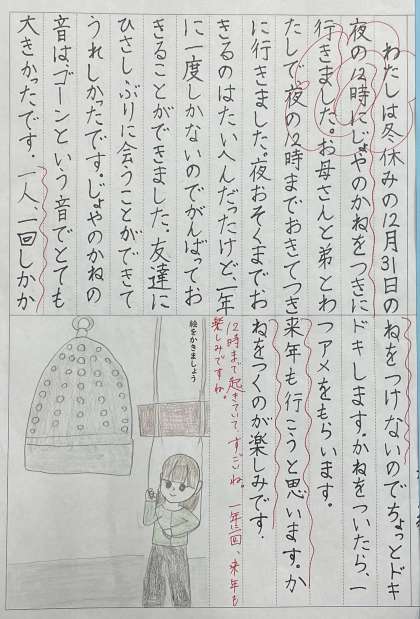 わたしは冬休みの12月31日の
夜の12時にじょやのかねをつきに
行きました。お母さんと弟とわ
たしで夜の12時までおきてつき
に行きました。夜おそくまでお
きるのはたいへんだったけど、一年
に一度しかないのでがんばってお
きることができました。友達に
ひさしぶりに会うことができて
うれしかったです。じょやのかねの
音は、ゴーンという音でとても
大きかったです。一人、一回しかか
ねをつけないのでちょっとドキ
ドキします。かねをついたら、一
つアメをもらいます。
来年も行こうと思います。か
ねをつくのが楽しみです。
12時まで起きていてすごいね。一年に一回、来年も
楽しみですね。
絵をかきましょう